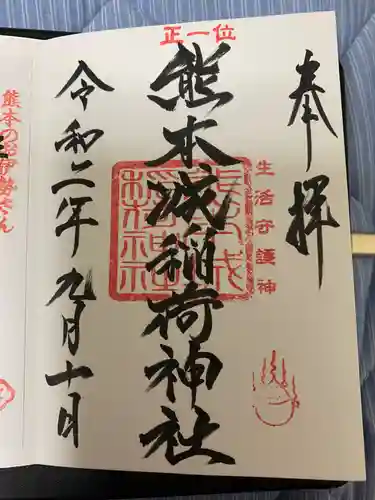 奉拝
生活守護神
正一位
熊本城稲荷神社
令和二年九月十日
熊本のお伊勢さん